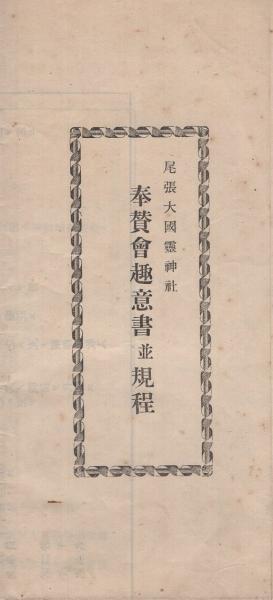 尾張大國靈神社
奉賛會趣意書並規程